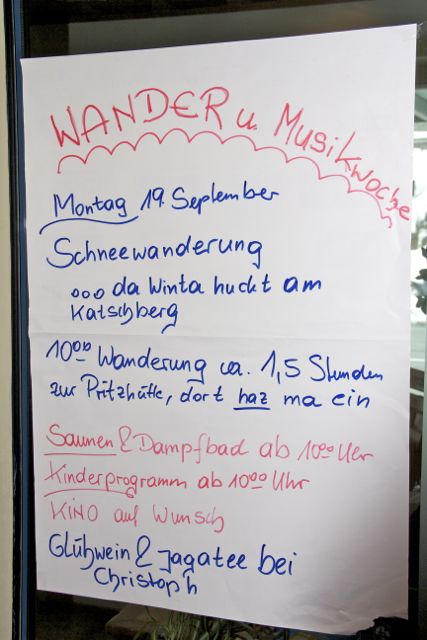 WANDER u. Musikwoche
Montag 19. September
Schneewanderung
ooo da Winta huckt am
Katschberg
10⁰⁰ Wanderung ca. 1,5 Stunden
zur Pritzhütte, dort haz ma ein
Saunen & Dampfbad ab 10⁰⁰ Uhr
Kinderprogramm ab 10⁰⁰ Uhr
KINO auf Wunsch
Glühwein & Jagatee bei
Christoph